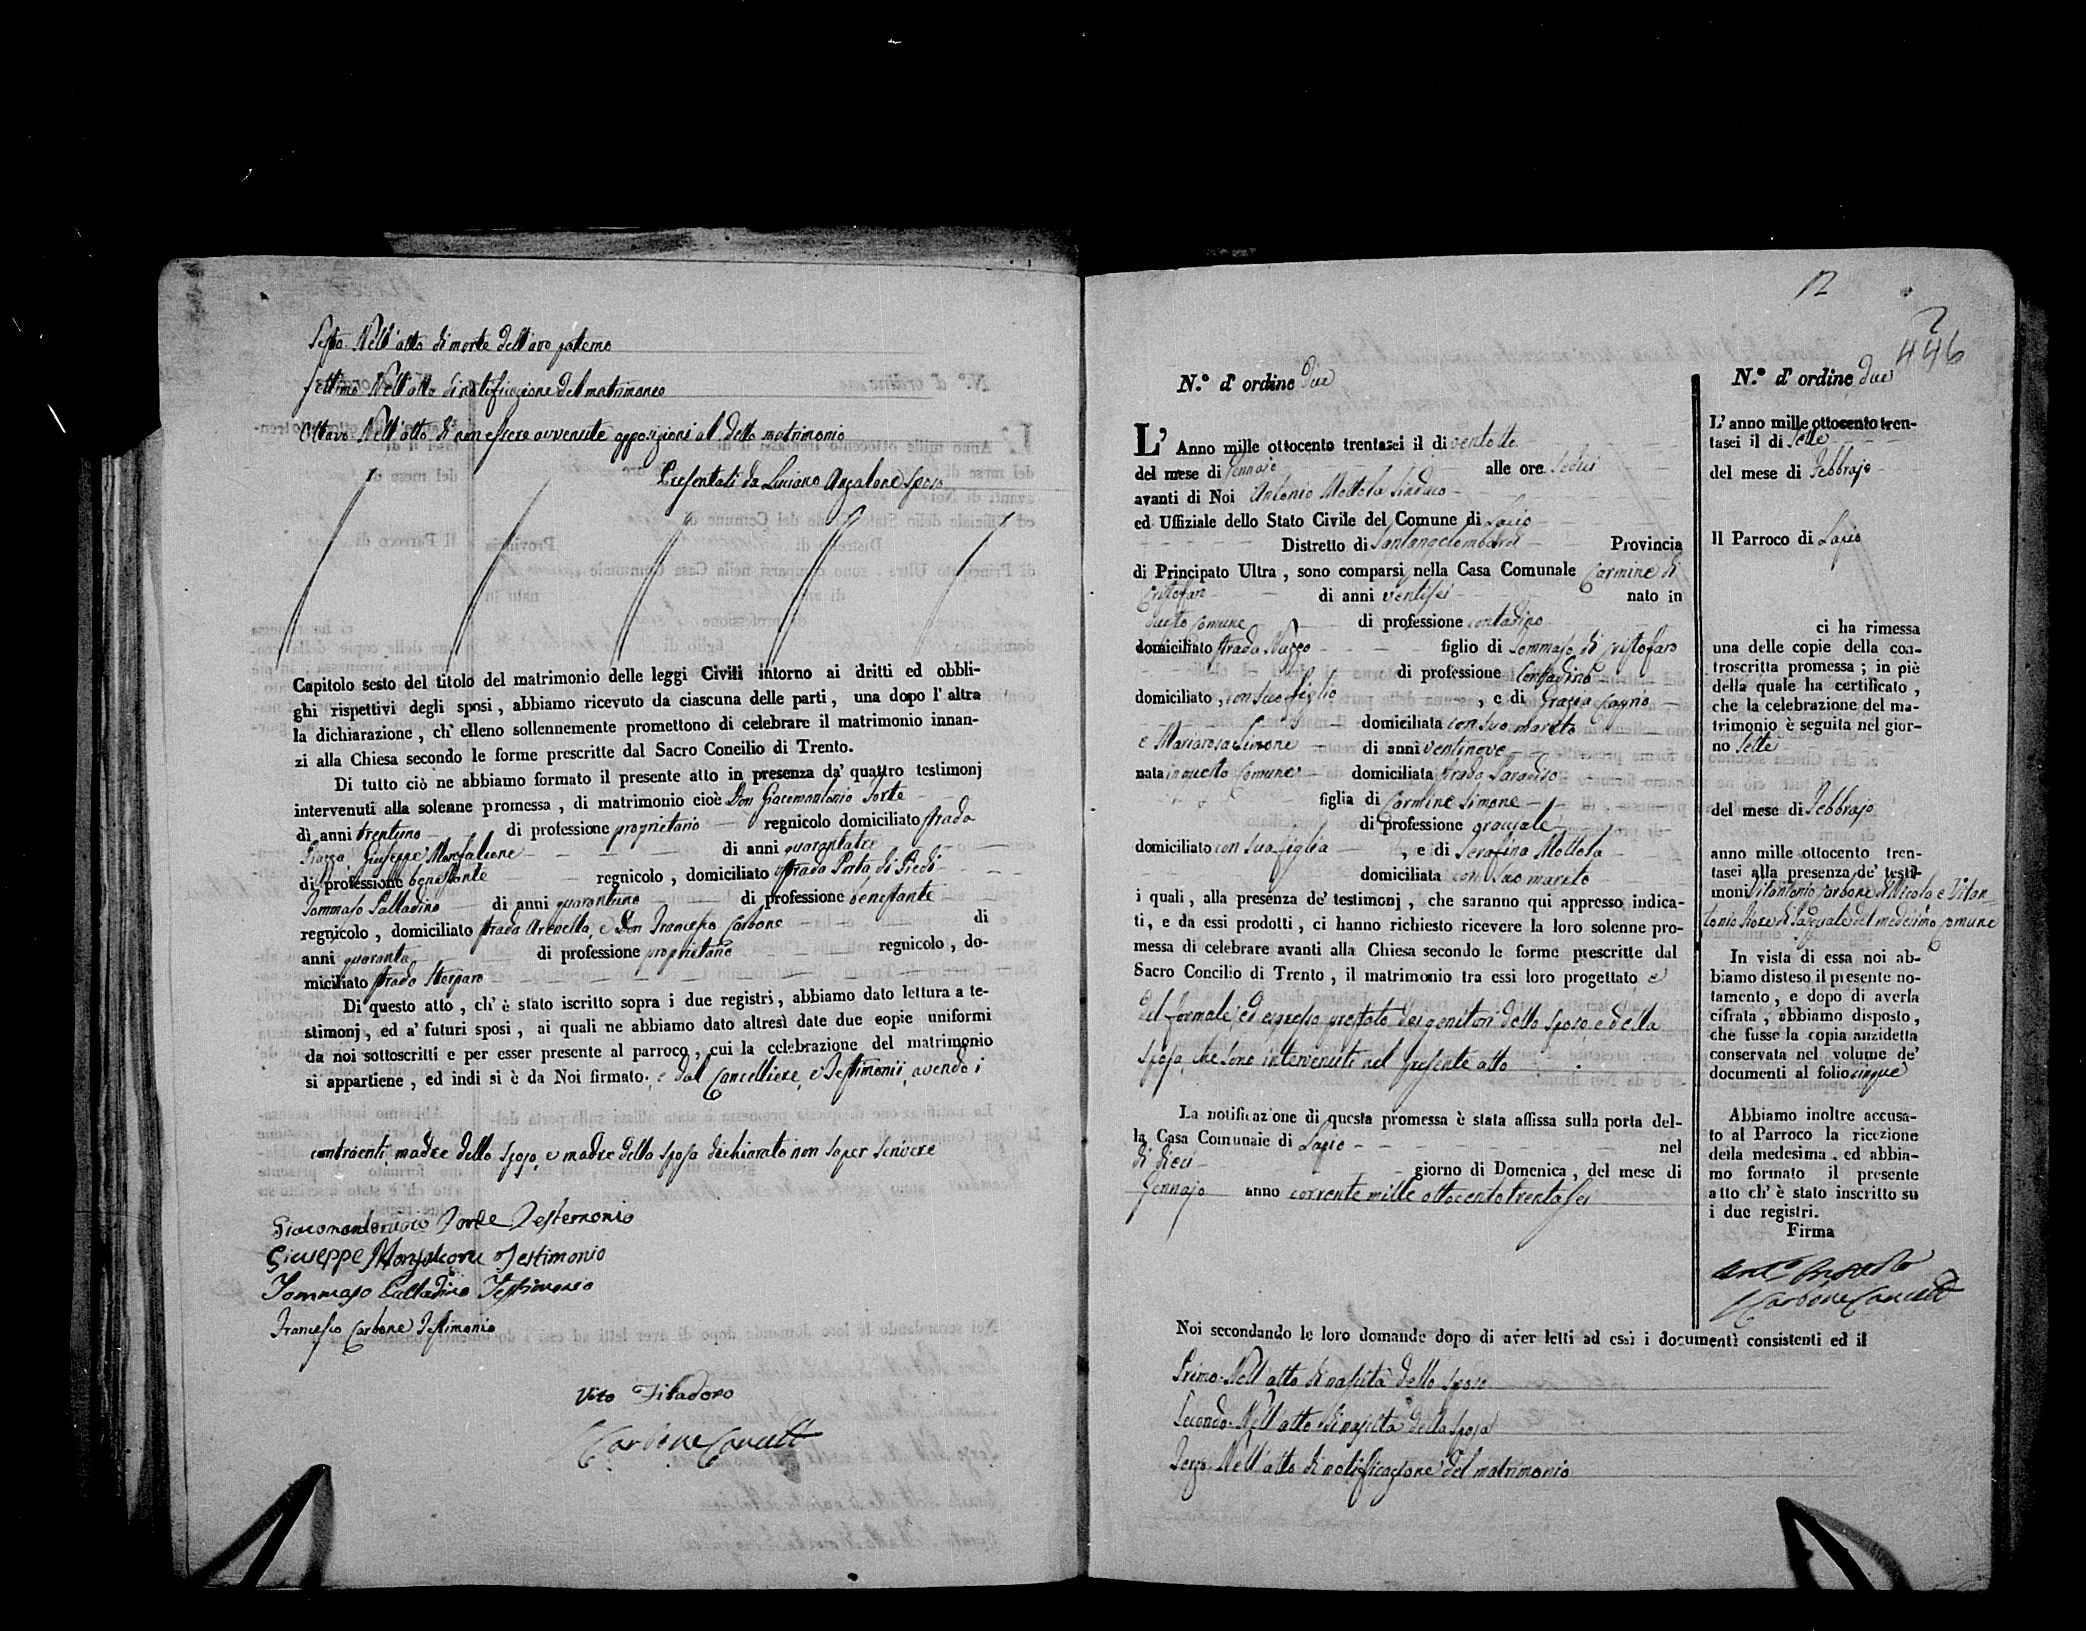 Sesto. Nell'atto di morte dell'avo paterno
Settimo Nell'atto di notificazione del matrimonio
Ottavo Nell'atto di non essere avvenute opposizioni al detto matrimonio
Presentati da Luciano Anzalone Sposo
Capitolo sesto del titolo del matrimonio delle leggi Civili intorno ai dritti ed obbli-
ghi rispettivi degli sposi, abbiamo ricevuto da ciascuna delle parti, una dopo l'altra
la dichiarazione, ch'elleno sollennemente promettono di celebrare il matrimonio innan-
zi alla Chiesa secondo le forme prescritte dal Sacro Concilio di Trento.
Di tutto ciò ne abbiamo formato il presente atto in presenza da' quattro testimonj
intervenuti alla solenne promessa, di matrimonio cioè Don Giacomantonio Forte
di anni trentuno di professione proprietario regnicolo domiciliato strada
Piazza, Giuseppe Monfalcone di anni quarantatre
di professione benestante regnicolo, domiciliato strada Porta di Piedi
Tommaso Palladino di anni quarantuno di professione benestante
regnicolo, domiciliato strada Arenella, e Don Francesco Carbone di
anni quaranta di professione proprietario regnicolo, do-
miciliato strada
Di questo atto, ch'è stato iscritto sopra i due registri, abbiamo dato lettura a te-
stimonj, ed a' futuri sposi, ai quali ne abbiamo dato altresì date due copie uniformi
da noi sottoscritti e per esser presente al parroco, cui la celebrazione del matrimonio
si appartiene, ed indi si è da Noi firmato. e dal Cancelliere, e Testimonii, avendo i
contraenti, madre dello sposo, e madre della sposa dichiarato non saper scrivere
Giacomantonio Forte Testemonio
Giuseppe Monfalcone Testimonio
Tommaso Palladino Testimonio
Francesco Carbone Testimonio
Vito
Carbone Cancell
12
2
446
N.º d'ordine due
L'Anno mille ottocento trentasei il di ventotto
del mese di Gennajo alle ore sedici
avanti di Noi Antonio Mottola Sindaco
ed Uffiziale dello Stato Civile del Comune di Lapio
Distretto di Santangelolombardi Provincia
di Principato Ultra, sono comparsi nella Casa Comunale Carmine di
Cristofaro di anni ventisei nato in
questo Comune di professione contadino
domiciliato strada figlio di Tommaso di Cristofaro
di professione Contadino
domiciliato, con suo figlio, e di Grazia
domiciliata con suo marito
e Mariarosa Simone di anni ventinove
nata in questo Comune domiciliata strada Paradiso
figlia di Carmine Simone
di professione bracciale
domiciliato con sua figlia, e di Serafina Mottola
domiciliata con suo marito
i quali, alla presenza de' testimonj, che saranno qui appresso indica-
ti, e da essi prodotti, ci hanno richiesto ricevere la loro solenne pro-
messa di celebrare avanti alla Chiesa secondo le forme prescritte dal
Sacro Concilio di Trento, il matrimonio tra essi loro progettato e
del formale, ed espresso prestato dei genitori dello sposo, e della
sposa, che sono intervenuti nel presente atto
La notificazione di questa promessa è stata affissa sulla porta del-
la Casa Comunale di Lapio nel
di dieci giorno di Domenica, del mese di
Gennajo anno corrente mille ottocento trentasei
N.º d'ordine due
L'anno mille ottocento tren-
tasei il di sette
del mese di Febbrajo
Il Parroco di Lapio
ci ha rimessa
una delle copie della con-
troscritta promessa; in piè
della quale ha certificato,
che la celebrazione del ma-
trimonio è seguita nel gior-
no sette
del mese di Febbrajo
anno mille ottocento tren-
tasei alla presenza de' testi-
moni Vitantonio Carbone di Nicola e Vitan-
tonio di Pasquale del medesimo comune
In vista di essa noi ab-
biamo disteso il presente no-
tamento, e dopo di averla
cifrata, abbiamo disposto,
che fusse la copia anzidetta
conservata nel volume de'
documenti al folio cinque
Abbiamo inoltre accusa-
to al Parroco la ricezione
della medesima, ed abbia-
mo formato il presente
atto ch'è stato inscritto su
i due registri.
Firma
Carbone Cancell
Noi secondando le loro domande dopo di aver letti ad essi i documenti consistenti ed il
Primo. Nell'atto di nascita dello sposo
Secondo. Nell'atto di nascita della sposa
Terzo. Nell'atto di notificazione del matrimonio